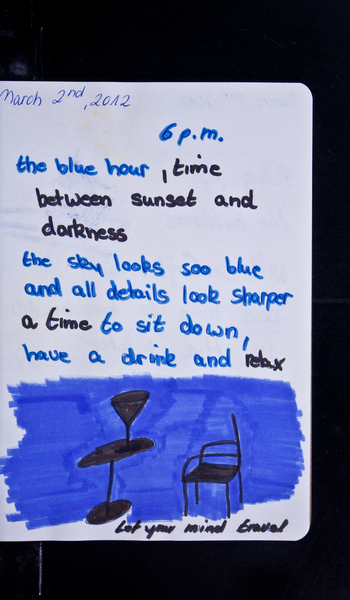 March 2nd, 2012
6 p.m.
the blue hour, time
between sunset and
darkness
the sky looks soo blue
and all details look sharper
a time to sit down,
have a drink and relax
Let your mind travel